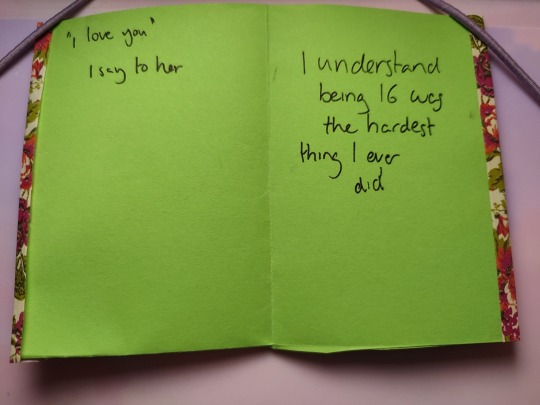 "I love you"
I say to her
I understand
being 16 was
the hardest
thing I ever
did